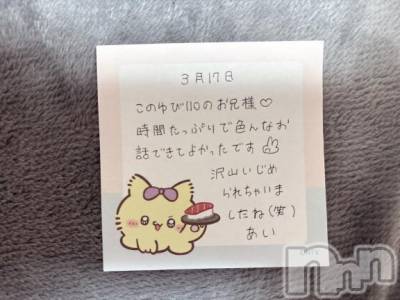 3月17日
このゆび110のお兄様♡
時間たっぷりで色んなお
話できてよかったです
沢山いじめ
られちゃいま
したね(笑)
あい
nnn